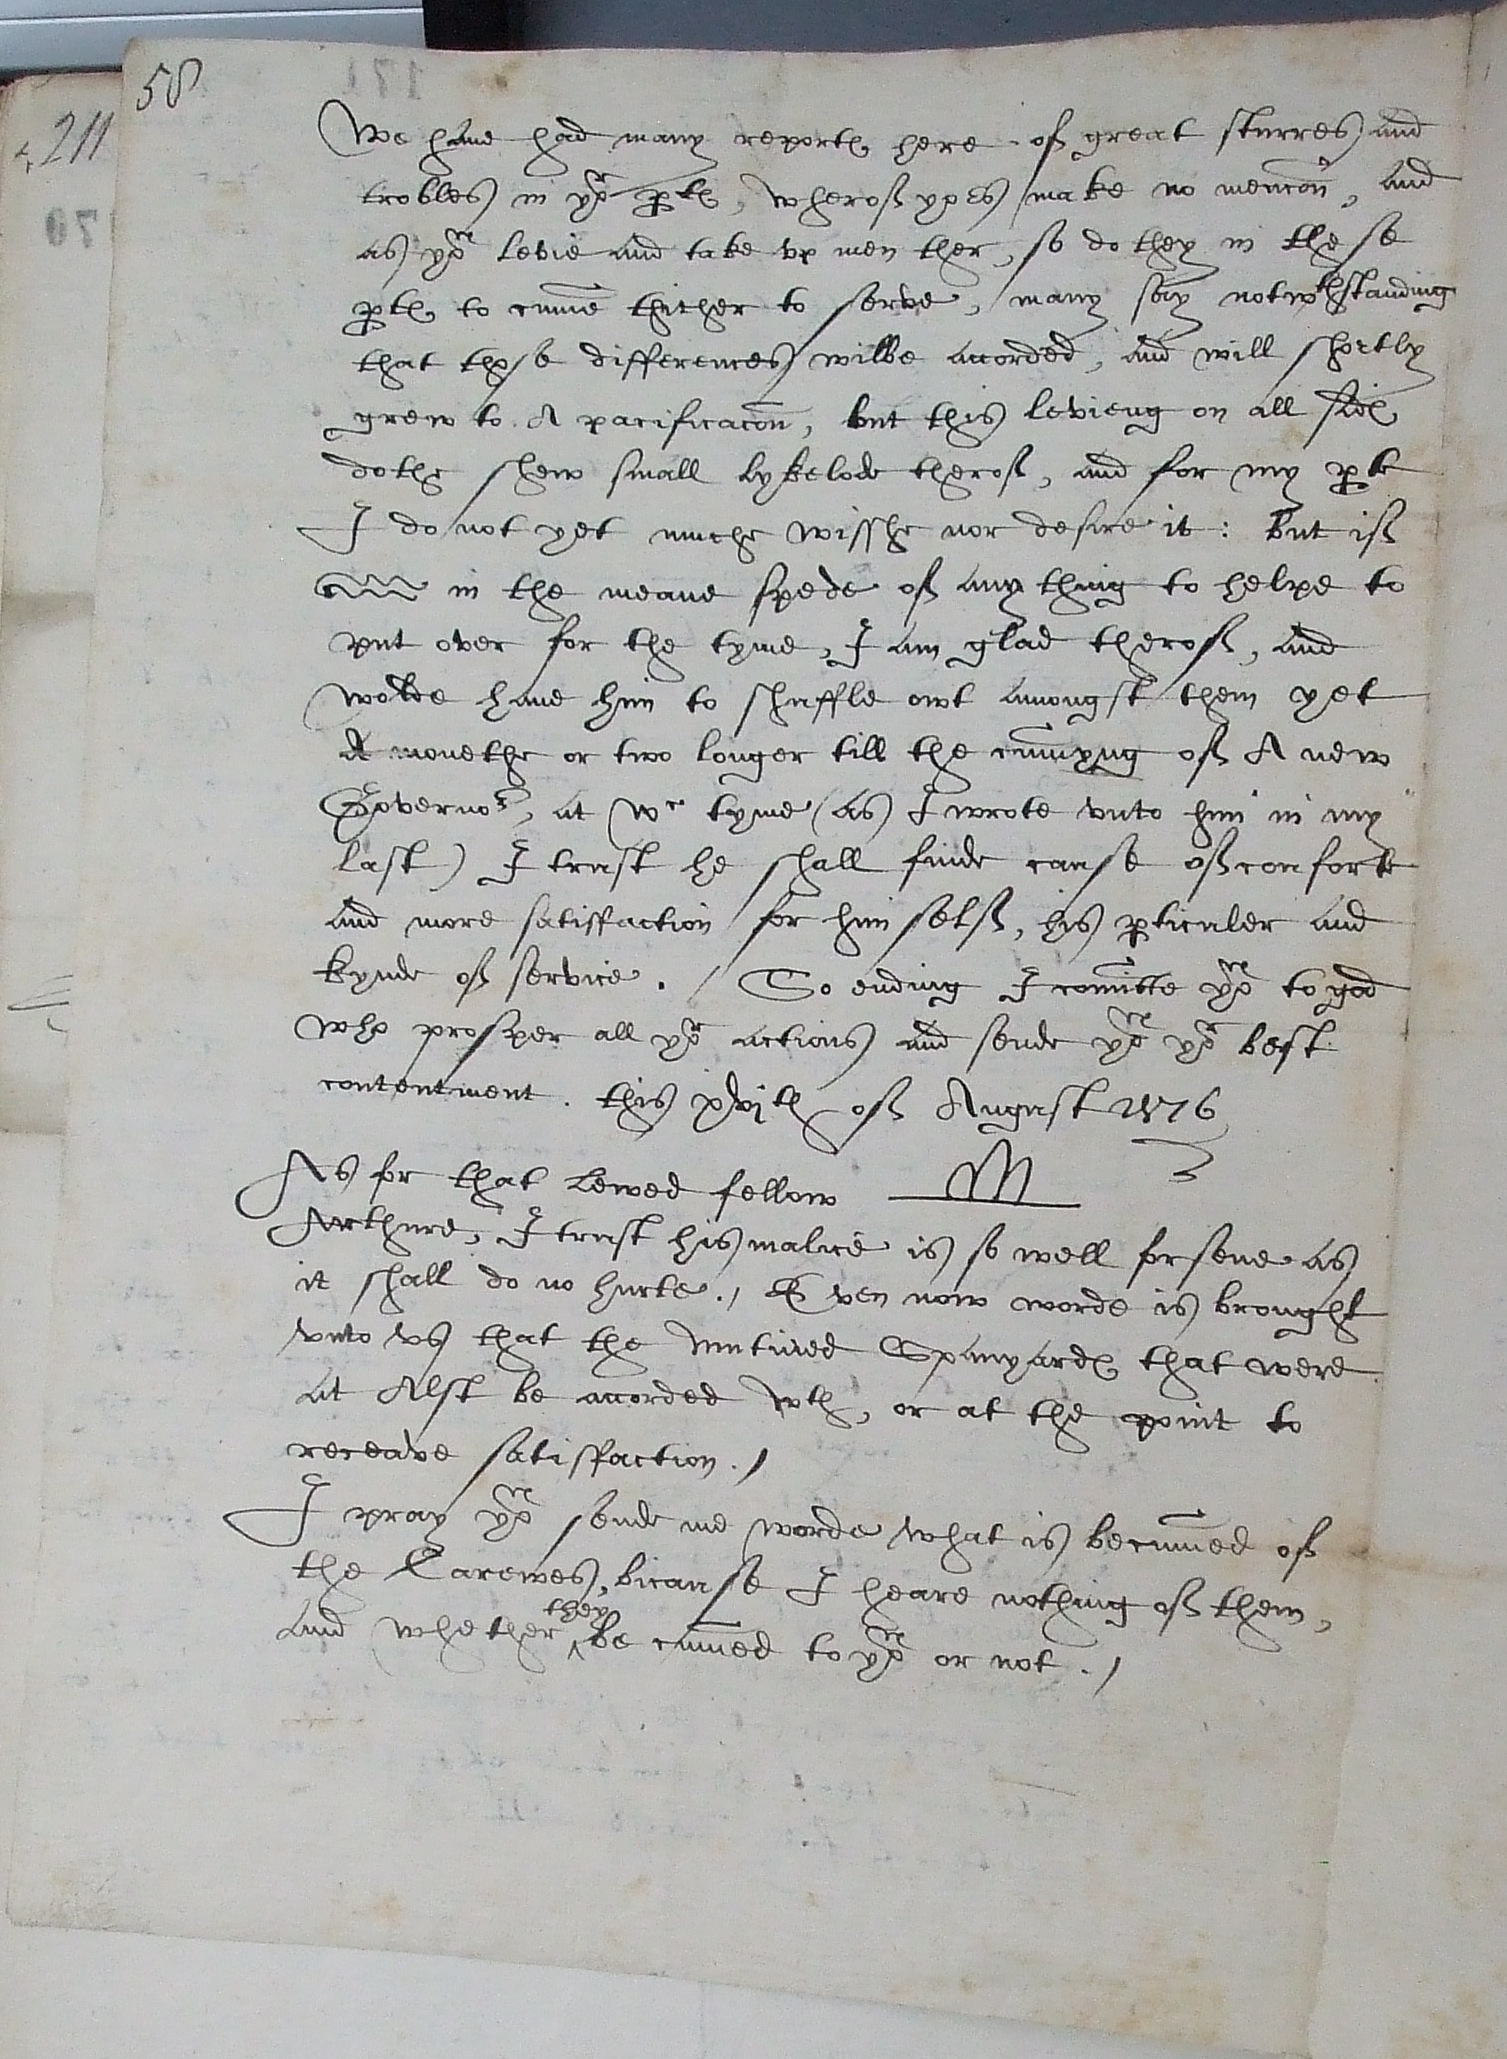 58
211
171
170
We have had many reportes here of great sturres and
trobles in yor ptes, wherof yo es make no mencon, and
as yow levie and take vp men ther, so do they in these
ptes to cume thither to serve, many say notwthstanding
that these differences wilbe accorded, and will shortly
grew to A pacificacon, but this levieng on all sides
dothe shew small lykelode therof, and for my pte
I do not yet muche wisshe nor desire it: But if
in the meane spede of any thing to helpe to
put over for the tyme, I am glad therof, and
wolde have him to shuffle owt amongst them yet
A monethe or two longer till the cumyng of A new
Governor, at wc tyme (as I wrote vnto him in my
last) I trust he shall finde cause of conforte
and more satisfaction for him self, his pticuler and
kynde of service. / So ending I comitte yow to god
who prosper all yor actions and sende yow yor best
contentment. this xvjth of August 1576
As for that lewed fellow M
Arthure, I trust his malice is so well forsene as
it shall do no hurte./ Even now worde is brought
vnto vs that the mutined Spanyardes that were
at Alst be accorded wth, or at the point to
receave satisfaction./
I pray yow sende me worde what is becumed of
the Carewes, bicause I heare nothing of them,
and whether they be cumed to yow or not./